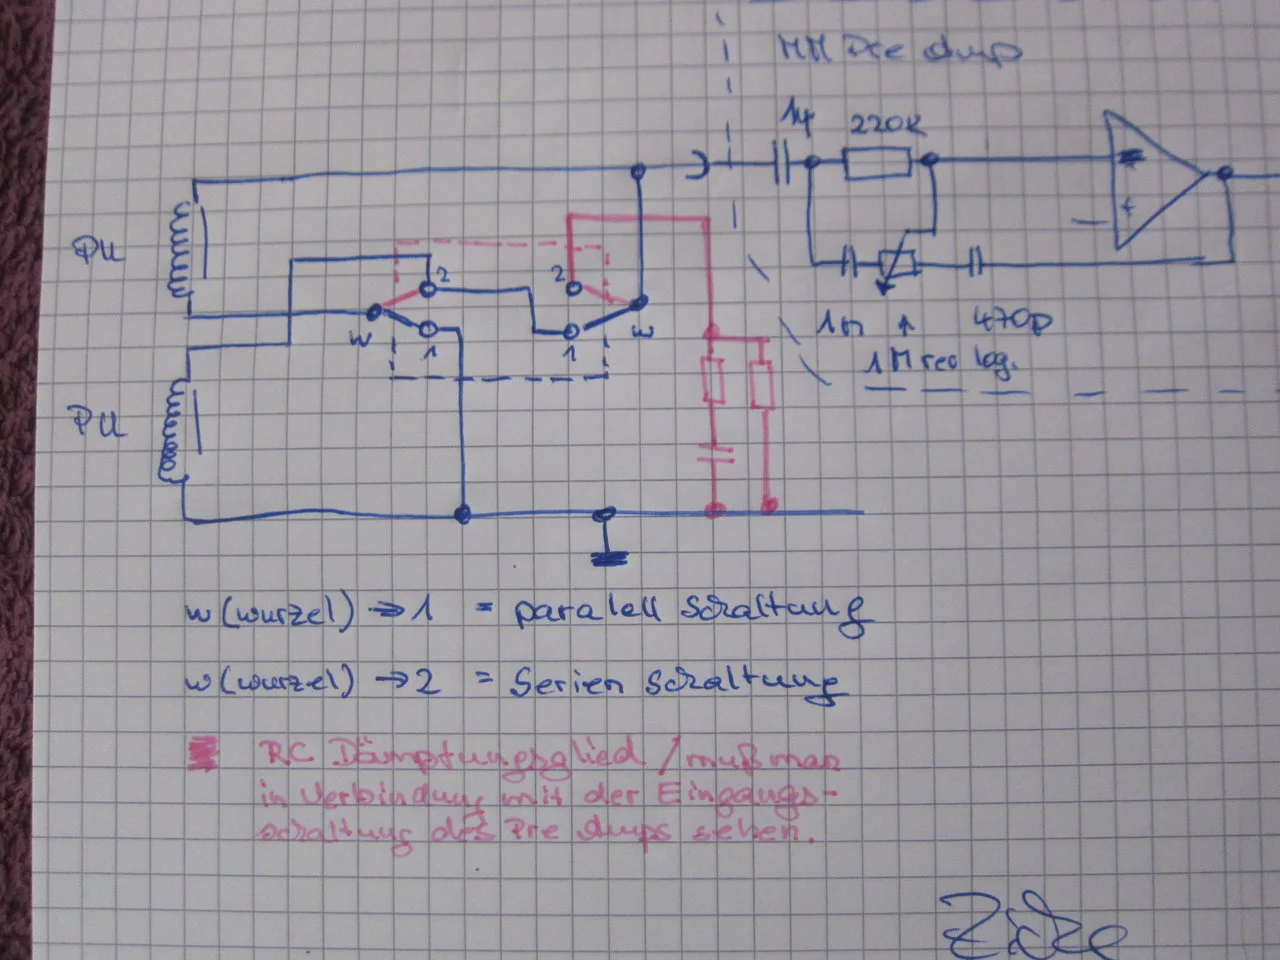 MM Pre Amp
1µ 220K
PU
2
2
-
+
W
1
1
W
1n
470p
1M rec log.
PU
W (wurzel) → 1 = paralell schaltung
W (wurzel) → 2 = Serien schaltung
RC Dämpfungsglied / muß man
in Verbindung mit der Eingangs-
schaltung des Pre Amps sehen.